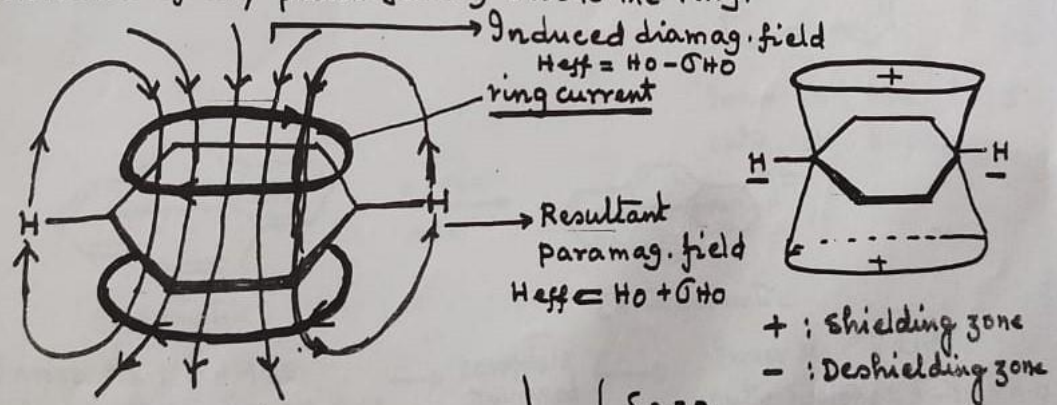 the ring.
Induced diamag. field
Heff = Ho - σHo
ring current
H
H
Resultant
paramag. field
Heff = Ho + σHo
+
H
H
+
+ : Shielding zone
- : Deshielding zone